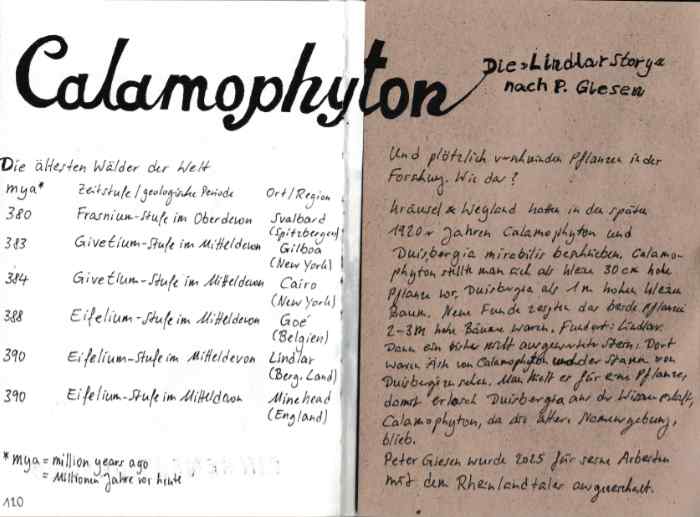 Calamophyton
Die ältesten Wälder der Welt
mya* Zeitstufe/geologische Periode Ort/Region
380 Frasnium-Stufe im Oberdevon Svalbard
(Spitzbergen)
383 Givetium-Stufe im Mitteldevon Gilboa
(New York)
384 Givetium-Stufe im Mitteldevon Cairo
(New York)
388 Eifelium-Stufe im Mitteldevon Goé
(Belgien)
390 Eifelium-Stufe im Mitteldevon Lindlar
(Berg. Land)
390 Eifelium-Stufe im Mitteldevon Minehead
(England)
* mya = million years ago
= Millionen Jahre vor heute
120
Die »Lindlar Story«
nach P. Giesen
Und plötzlich verschwinden Pflanzen in der
Forschung. Wie das?
Kräusel & Weyland hatten in den späten
1920er Jahren Calamophyton und
Duisbergia mirabilis beschrieben. Calamo-
phyton stellt man sich als kleine 30 cm hohe
Pflanze vor, Duisbergia als 1m hohen kleinen
Baum. Neue Funde zeigten das beide Pflanzen
2-3m hohe Bäume waren. Fundort: Lindlar.
Dann ein bisher nicht ausgewerteter Stein: Dort
waren Äste von Calamophyton und der Stamm von
Duisbergia zu sehen. Man hielt es für eine Pflanze,
damit erlosch Duisbergia aus der Wissenschaft,
Calamophyton, da die ältere Namensgebung,
blieb.
Peter Giesen wurde 2025 für seine Arbeiten
mit dem Rheinlandtaler ausgezeichnet.